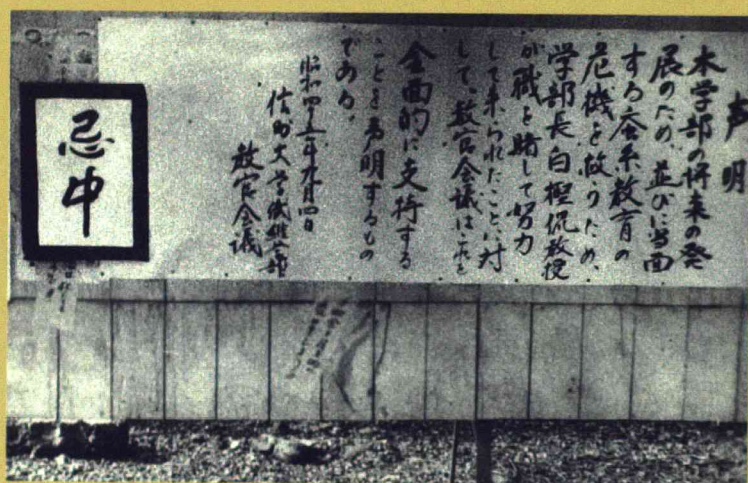 声明
本学部の将来の発
展のため、並びに当面
する蚕糸教育の
危機を救うため、
学部長白樫侃教授
が職を賭して努力
して来られたことに対
して、教官会議はこれを
全面的に支持する
ことを声明するもの
である。
昭和四十五年九月四日
信州大学繊維学部
教官会議
忌中